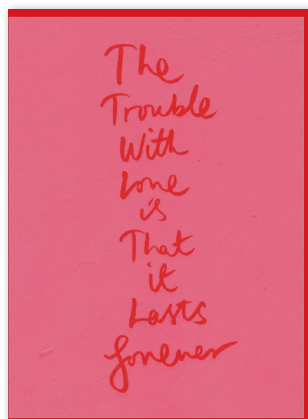 The
Trouble
With
Love
is
That
it
Lasts
forever